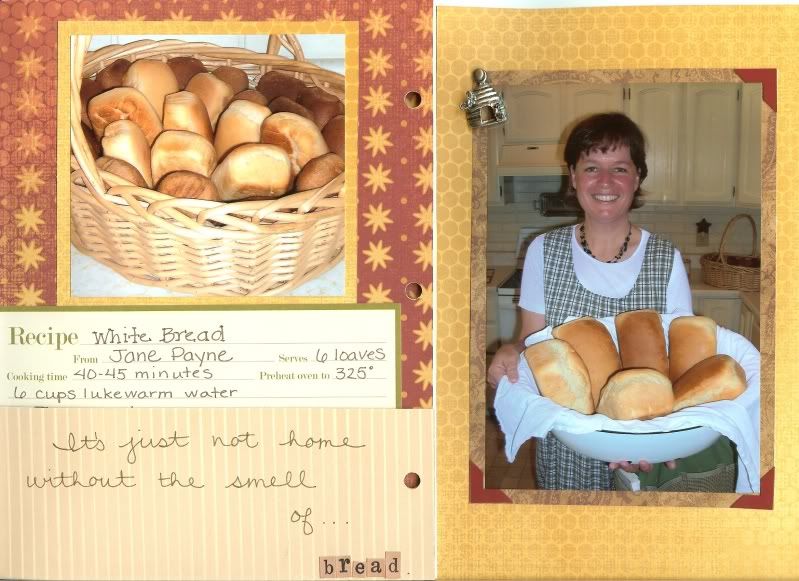 Recipe White Bread
From Jane Payne Serves 6 loaves
Cooking time 40-45 minutes Preheat oven to 325°
6 cups lukewarm water
It's just not home
without the smell
of...
bread.